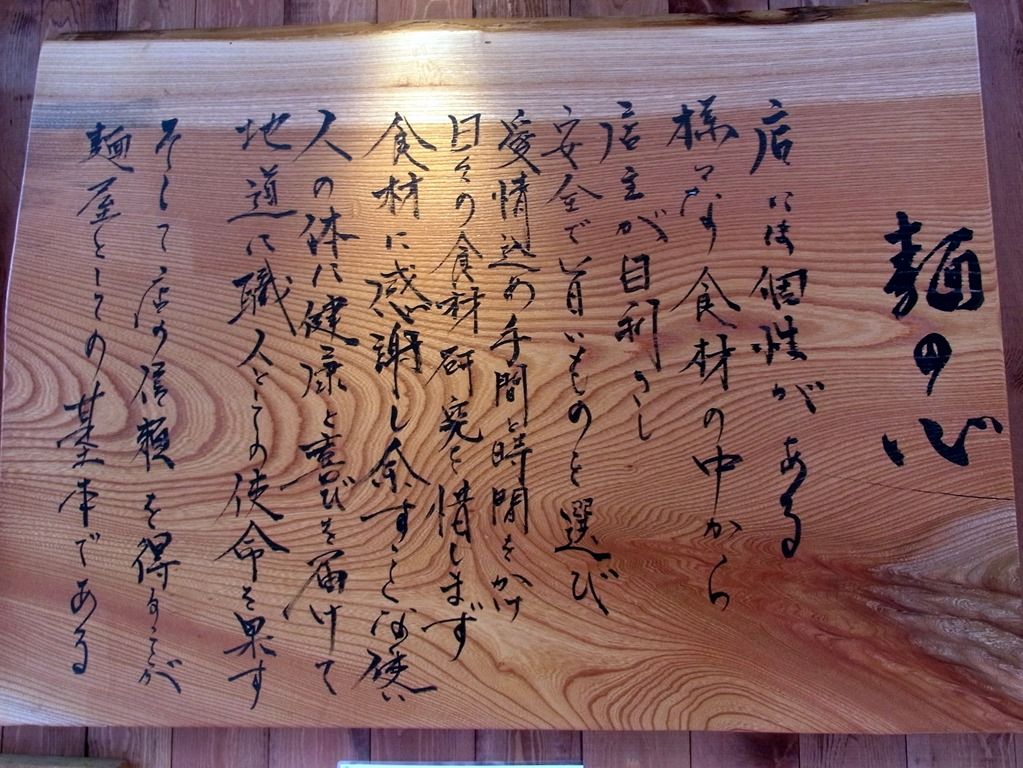 麺の心
店には個性がある
様々な食材の中から
店主が目利きし
安全で旨いものを選び
愛情込め手間と時間をかけ
日々の食材研究を惜しまず
食材に感謝し余すことな使い
人の体に健康と喜びを届けて
地道に職人としての使命を果す
そして店の信頼を得ることが
麺屋としての基本である